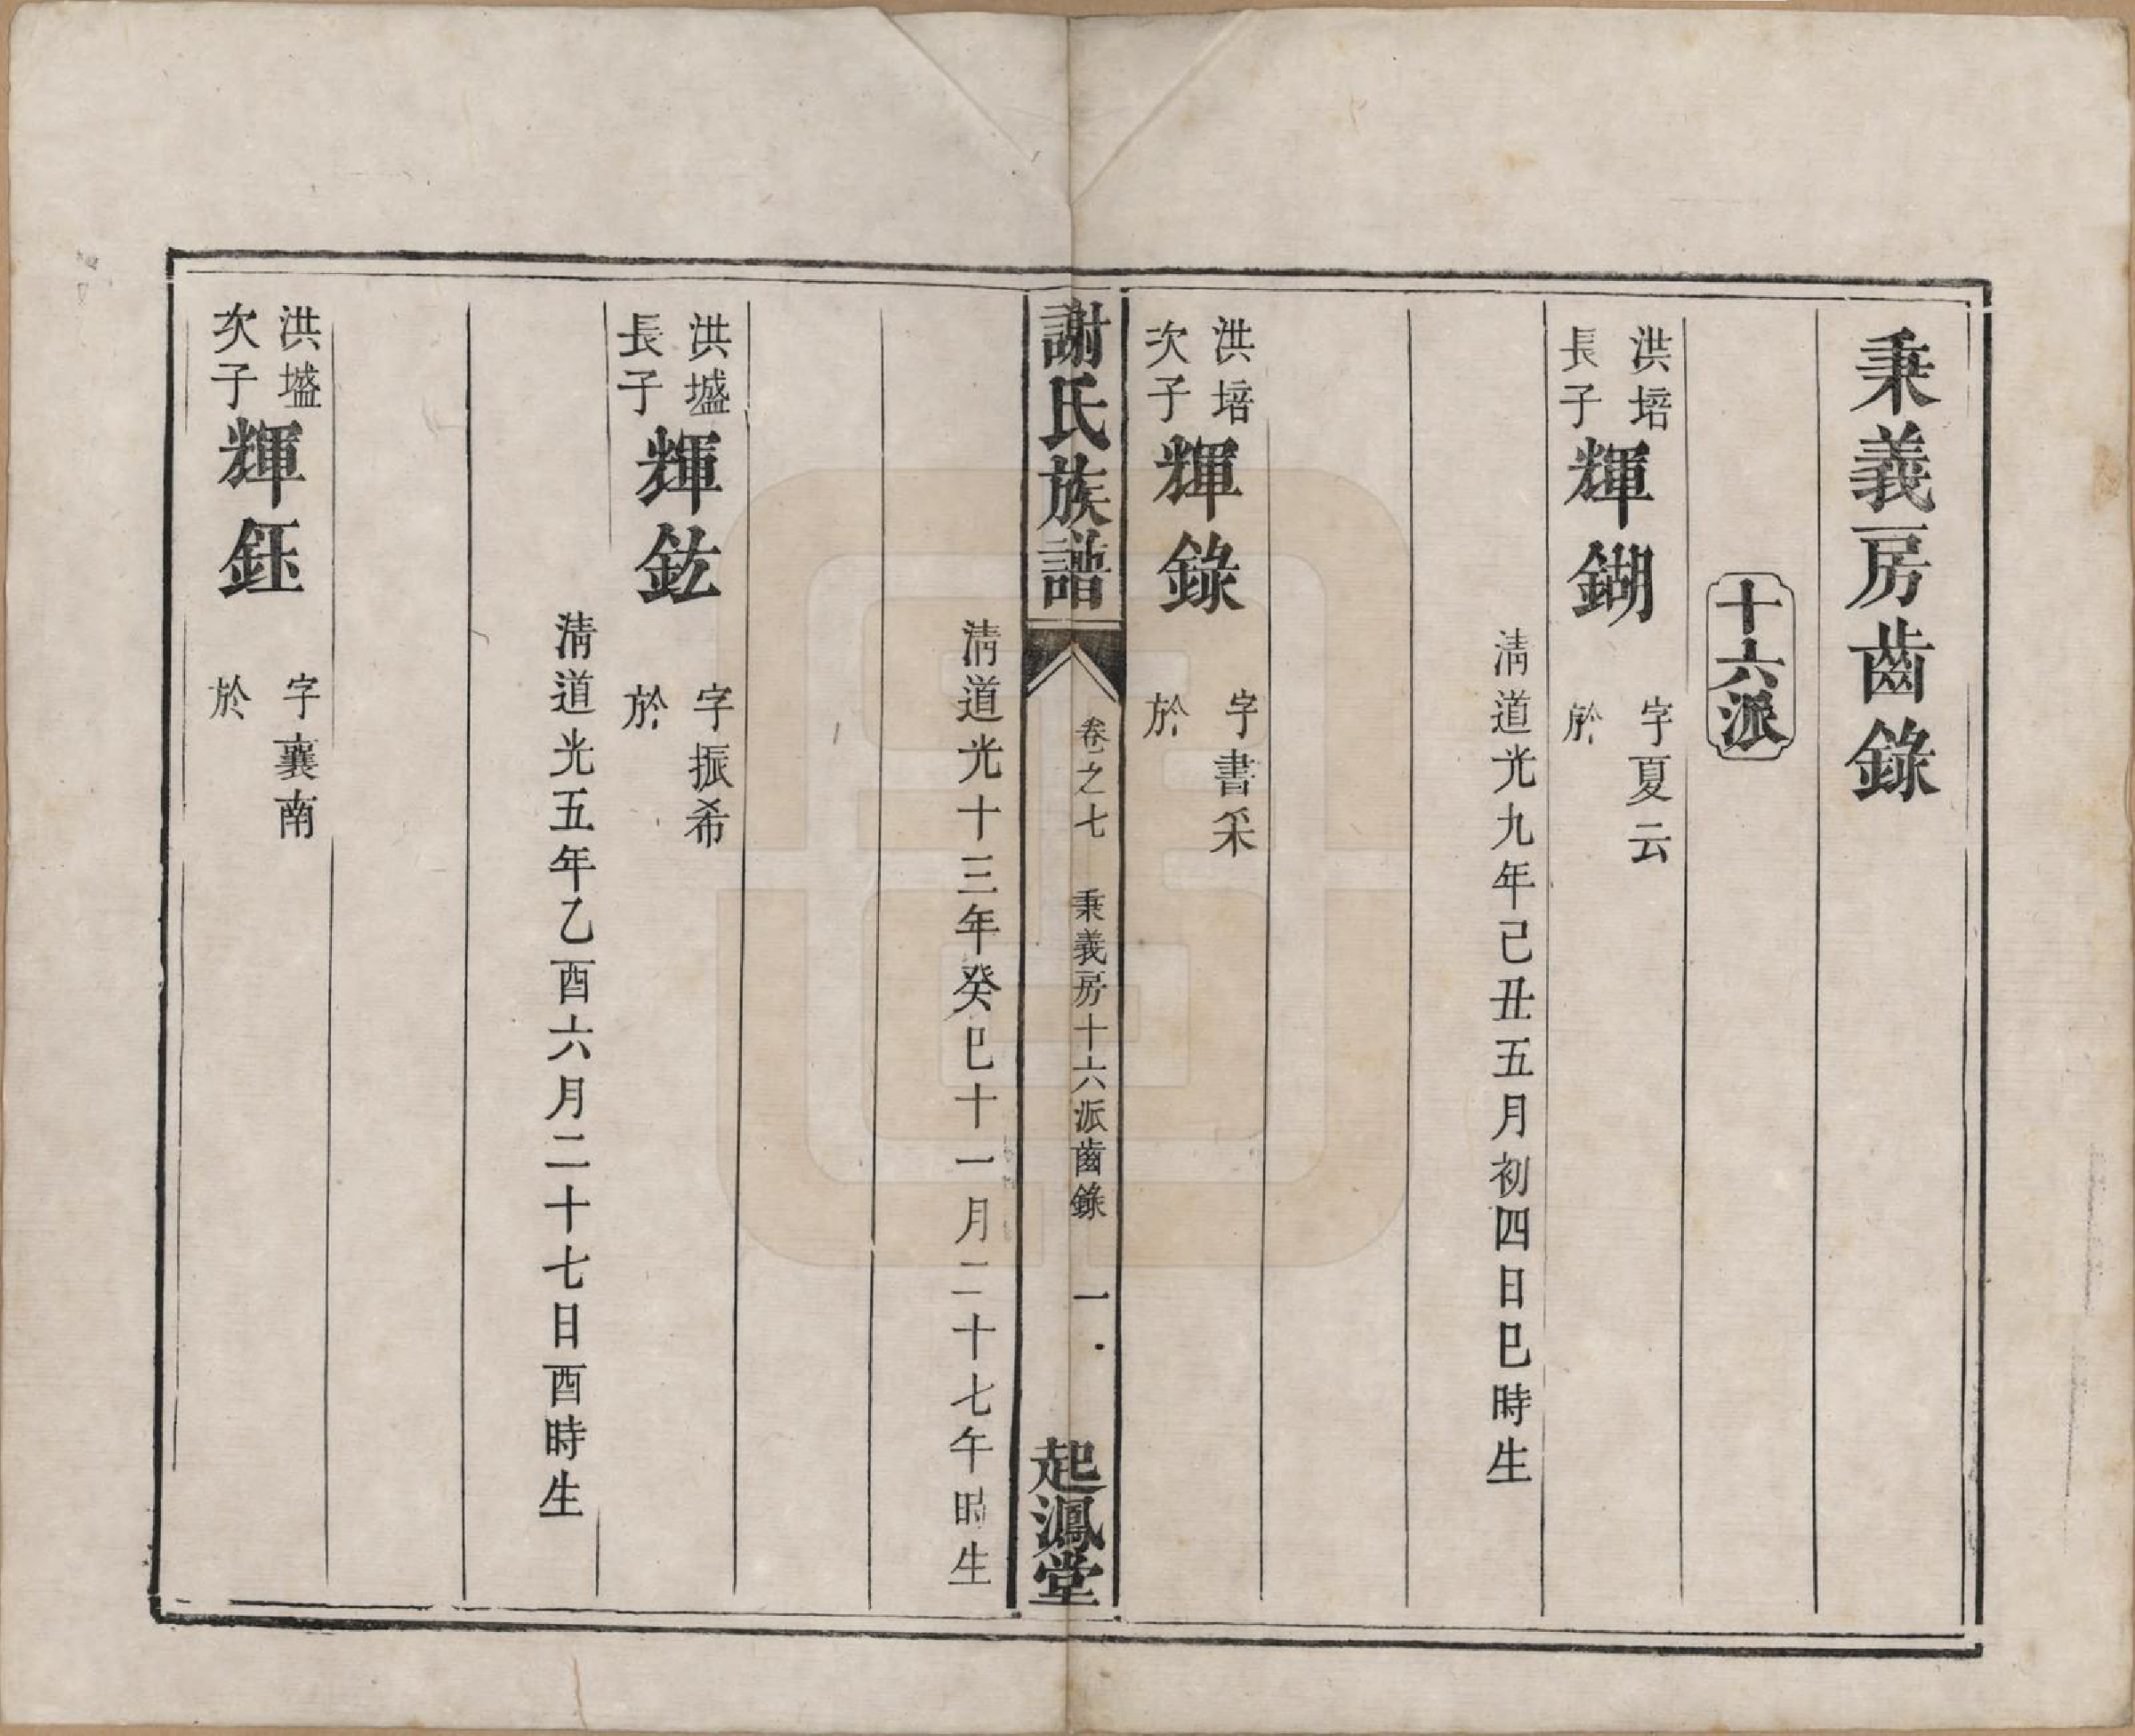 秉義房齒錄
十六派
洪培
長子
輝鍸
字夏云
於
清道光九年己丑五月初四日巳時生
洪培
次子
輝錄
字書采
於
謝氏族譜
卷之七
秉義房十六派齒錄
一
起鳳堂
清道光十三年癸巳十一月二十七午時生
洪塧
長子
輝鈜
字振希
於
清道光五年乙酉六月二十七日酉時生
洪塧
次子
輝鈺
字襄南
於